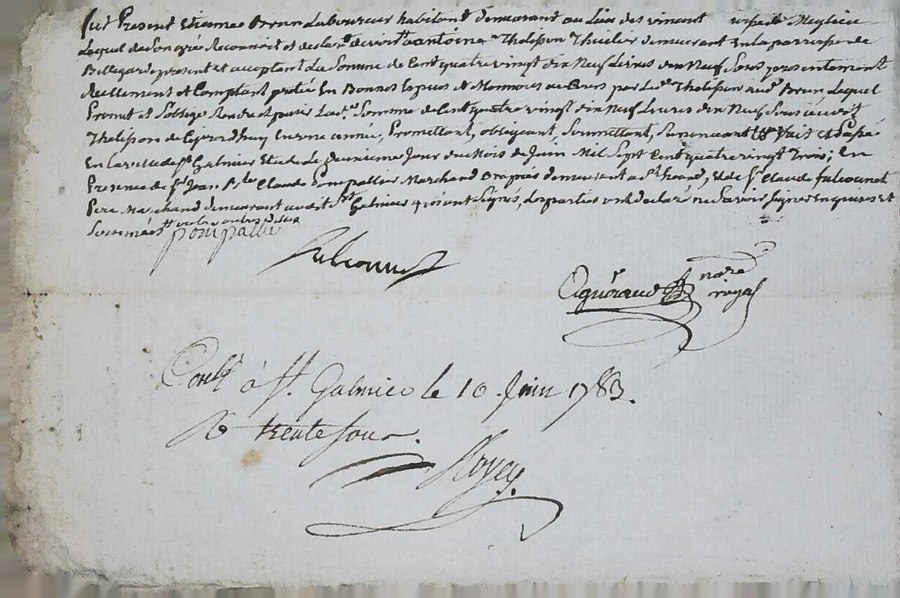 fut Present Etienne Brun Laboureur habitant demeurant au Lieu des vincent
Lequel de son gré Reconnoit et declare devoir à antoine Thelisson Thuilier demeurant En la parroisse de
Bellegarde present et acceptant La Somme de Cent quatre vingt dix Neuf Livres dix Neuf Sous presentement
Reellement et Comptant pretée En Bonnes Espèces et Monnoies au Cours par Led. Thelisson aud. Brun Lequel
Promet et s'oblige Rendre et païer Lad. Somme de Cent quatre vingt dix neuf Livres dix Neuf Sous aud.
Thelisson de Cejourdhuy En une année, Promettant, obligeant, Soumettant, Renoncant fait et Passé
En La ville de St. Galmier Etude Le deuxieme Jour du Mois de Juin Mil Sept Cent quatre vingt Trois; En
Presence de Sr. Jean Bte. Claude Pompallier Marchand Drapier demeurant a St. et de Sr. Claude falconnet
Pere Marchand demeurant audit St. Galmier qui ont Signés, Les parties ont declaré ne Savoir Signer Enquises et
Sommées
pompallier
falconnet
Aguiraud nore
royal
Conlé. à St. Galmier le 10 Juin 1783.
R trente sous.
Royer